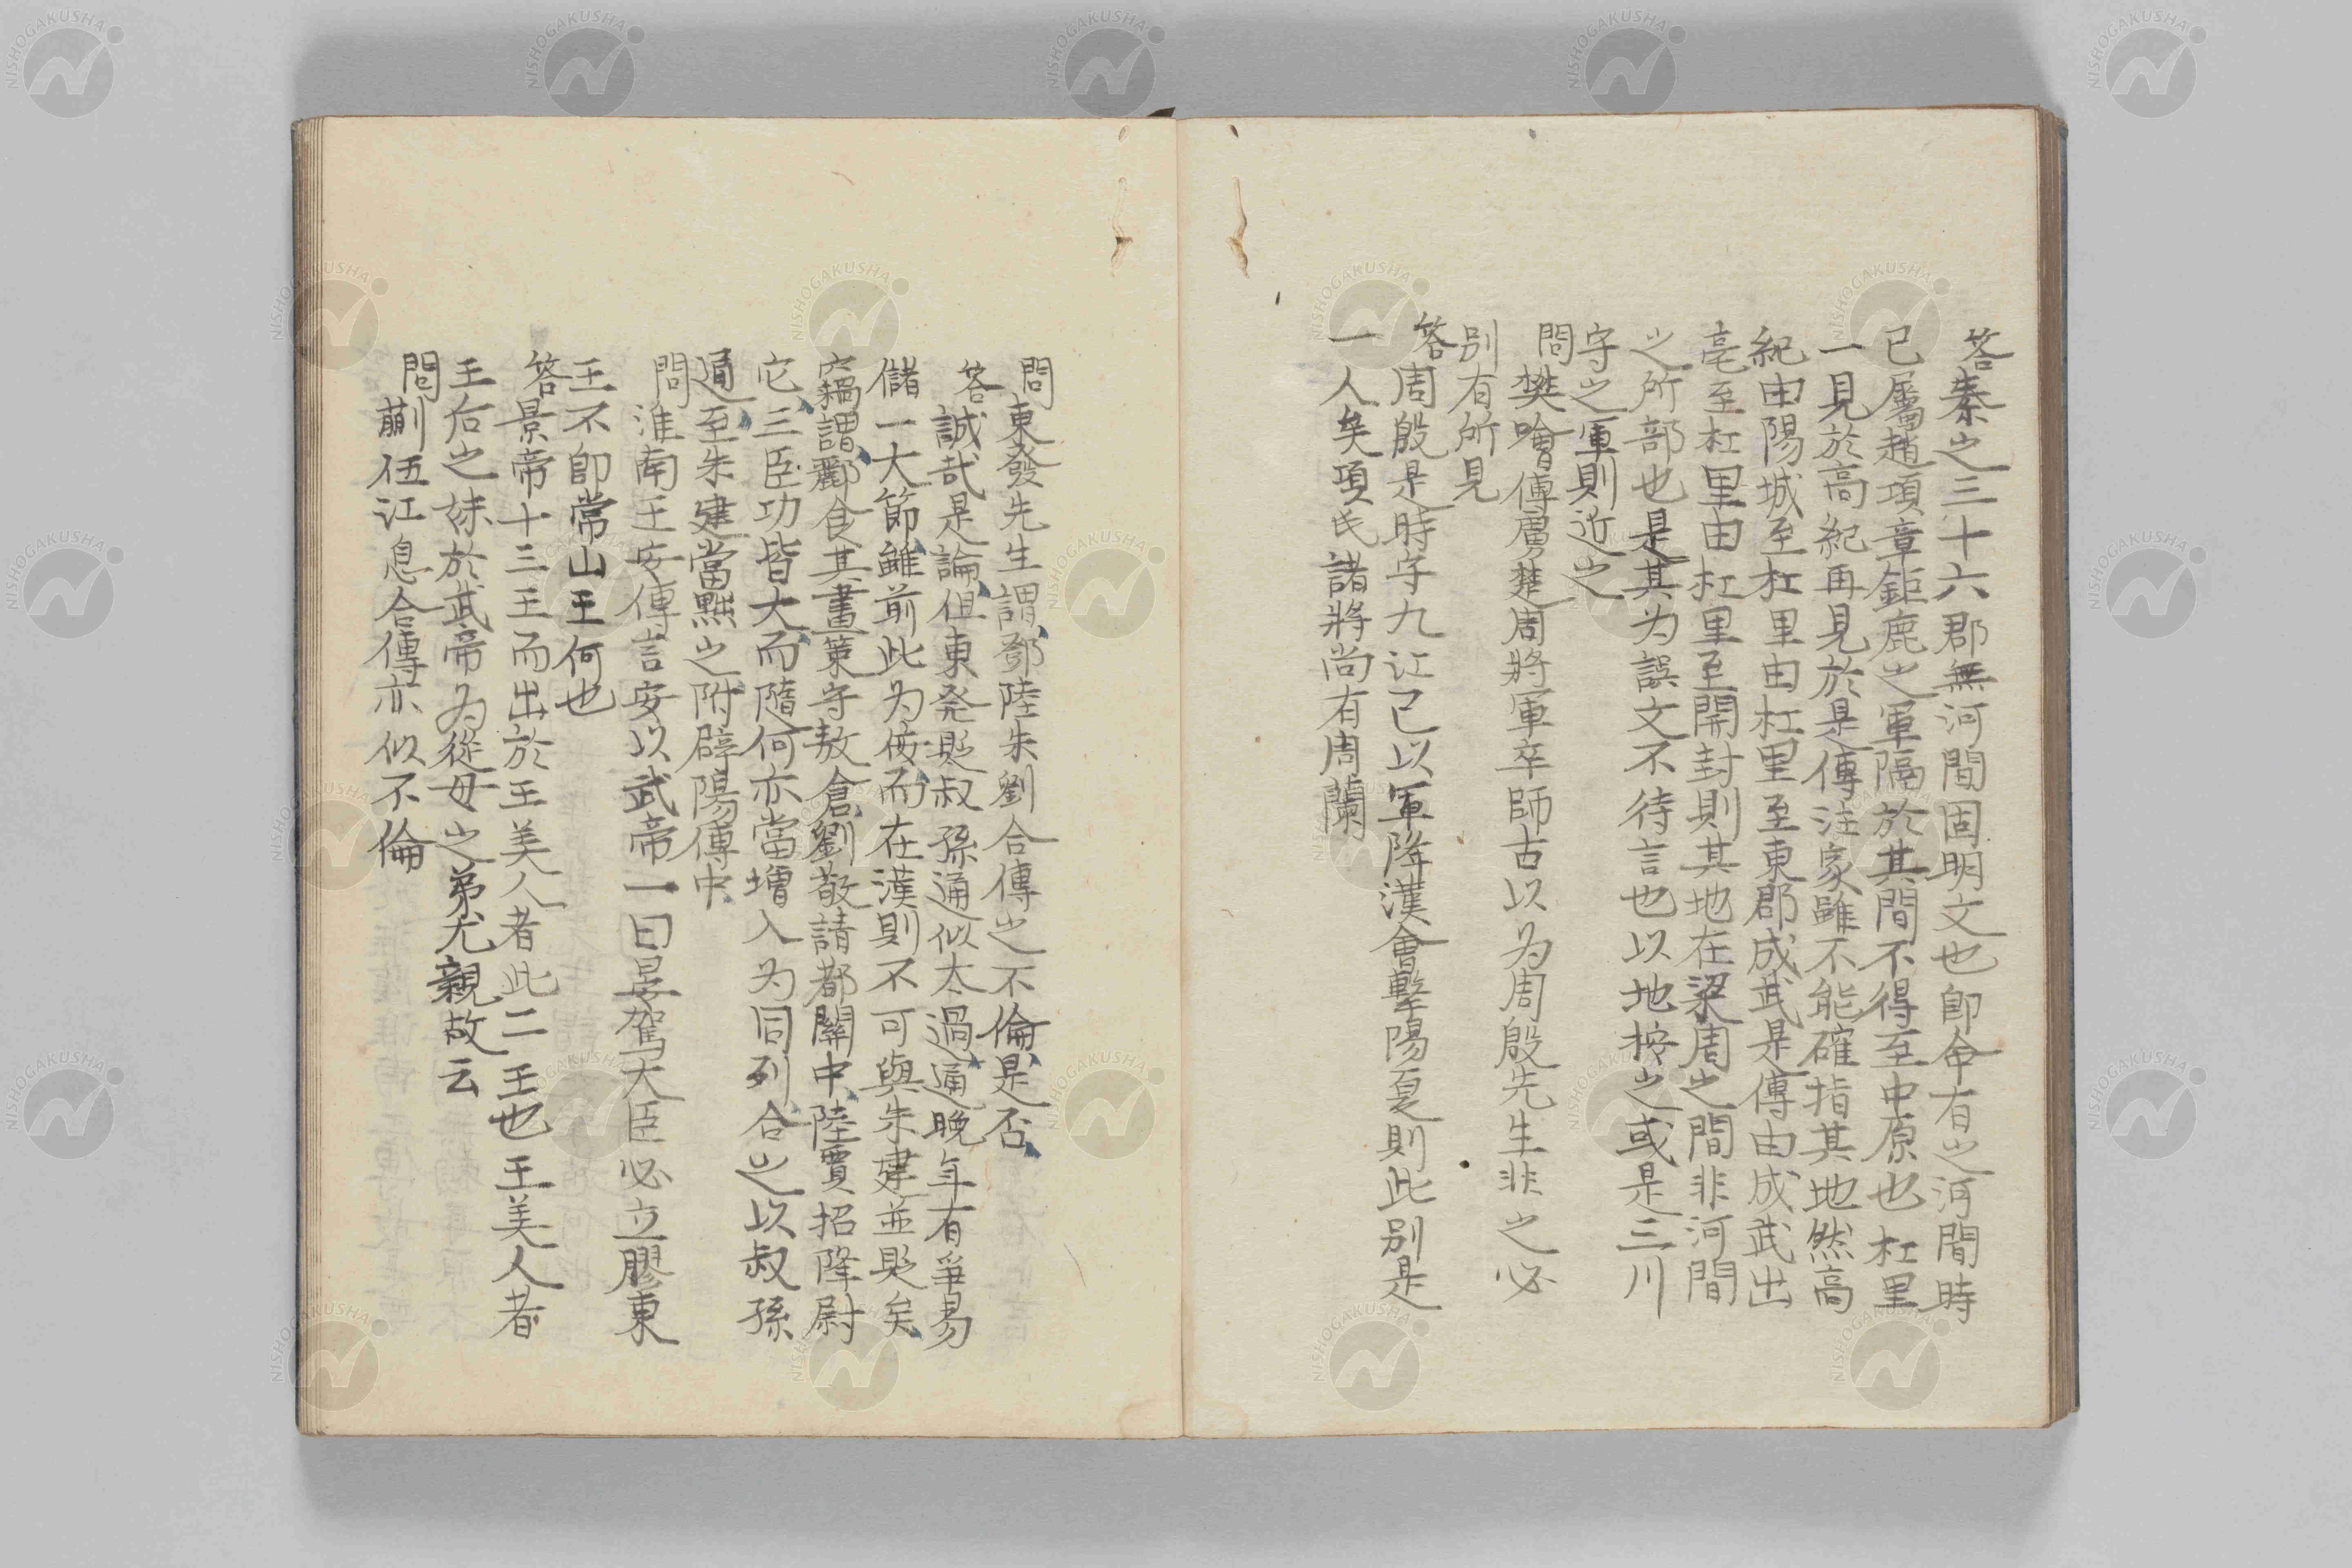 答秦之三十六郡無河間固明文也卽令有之河間時
已屬趙項章鉅鹿之軍隔於其間不得至中原也杠里
一見於高紀再見於是傳注家雖不能確指其地然高
紀由陽城至杠里由杠里至東郡成武是傳由成武出
亳至杠里由杠里至開封則其地在梁周之間非河間
之所部也是其为誤文不待言也以地按之或是三川
守之軍則近之
問樊噲傳虜楚周將軍卒師古以为周殷先生非之必
别有所見
答周殷是時守九江已以軍降漢會擊陽夏則此别是
一人矣項氏諸將尚有周蘭
問東發先生謂酈陸朱劉合傳之不倫是否
答誠哉是論但東発貶叔孫通似太過通晚年有爭易
儲一大節雖前此为佞而在漢則不可與朱建並貶矣
竊謂酈食其畫策守敖倉劉敬請都關中陸賈招降尉
它三臣功皆大而隨何亦當增入为同列合之以叔孫
通至朱建當黜之附辟陽傳中
問淮南王安傳言安以武帝一日晏駕大臣必立膠東
王不卽常山王何也
答景帝十三王而出於王美人者此二王也王美人者
王后之妹於武帝为從母之弟尤親故云
問蒯伍江息合傳亦似不倫
NISHOGAKUSHA